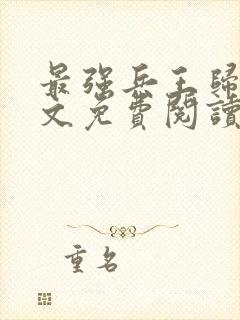 最强兵王歸
文免費閱讀
重名